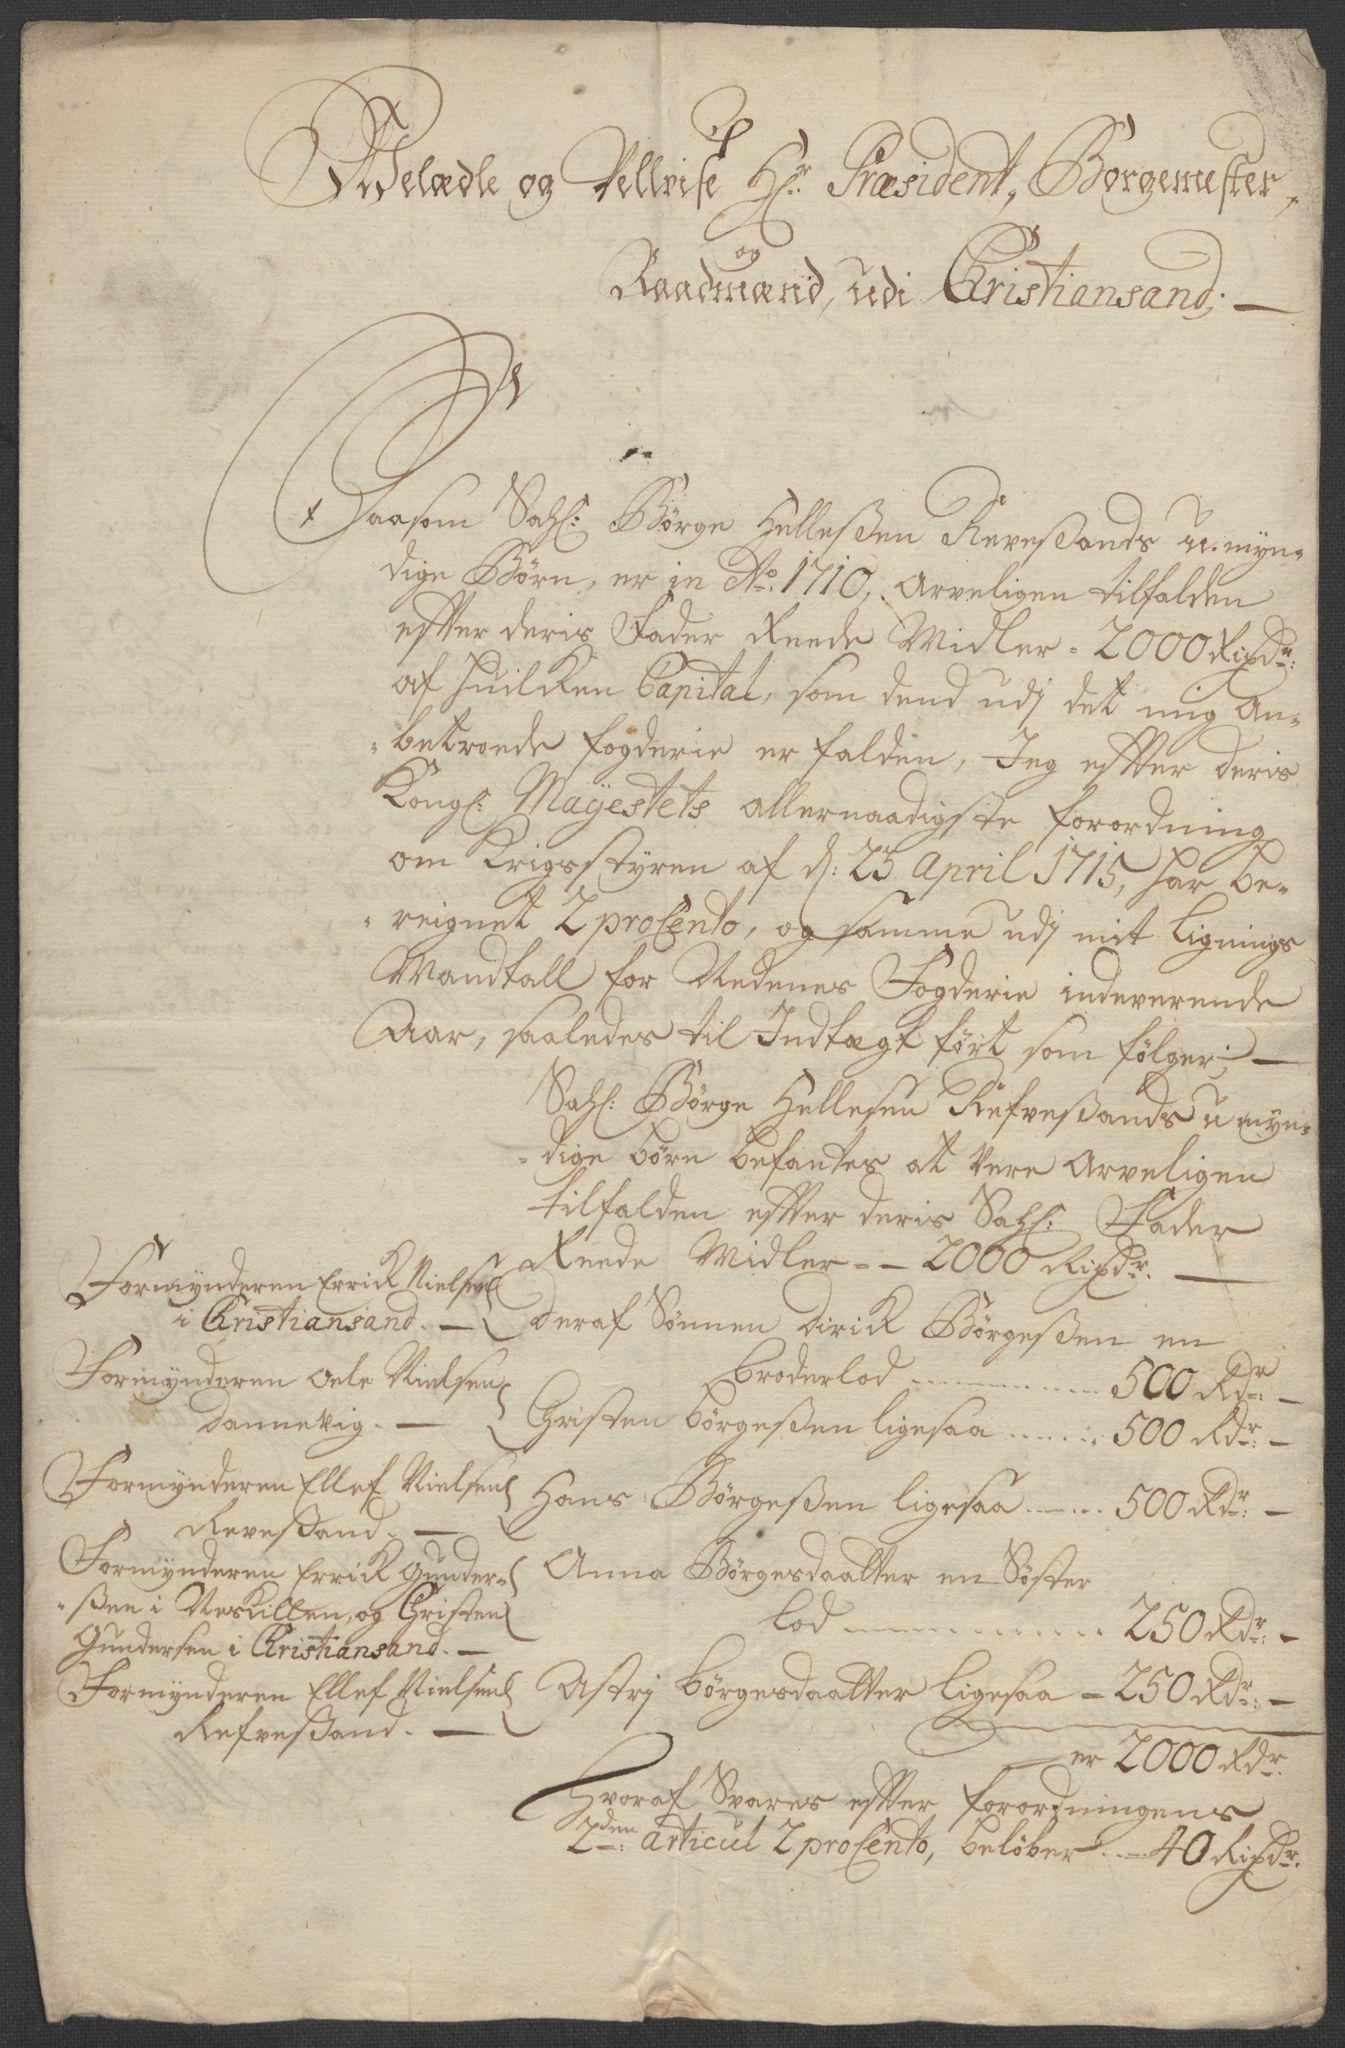 Welædle og Vellvise Hr: Præsident, Borgemester,
og
Raadmænd, udi Christiansand;
Saasom Sahl: Børge Hellesßen Reveßands u-myn-
dige Børn, er in Ao: 1710, Arveligen tilfalden
effter deris Fader Reede Midler - 2000 Rixdr:
af huilken Capital, som dend udj det mig An-
-betroede fogderie er falden, Jeg effter deris
Kongl: Mayestets allernaadigste forordning
om Krigsstyren af d: 25 April 1715, har be-
-reignet 2 pro Cento, og samme udj mit Lignings
Mandtall for Nedenes Fogderie indeverende
Aar, saaledes til Indtægt ført som følger;
Sahl: Børge Hellesen Refveßands u myn-
-dige børn befantes at vere Arveligen
tilfalden effter deris Sahl: Fader
Reede Midler - - 2000 Rixdr.
Formynderen Errick Nielsen
i Christiansand. -
deraf Sønnen Dirick Børgesßen en
Broderlod ............ 500 Rdr: -
Formynderen Oele Nielsen
Dannevig. -
Christen Børgesßen ligesaa ...... 500 Rdr: -
Formynderen Ellef Nielsen
Reveßand. -
Hans Børgesßen ligesaa ...... 500 Rdr: -
Formynderen Errick Gunder-
-ßen i Neskillen, og Christen
Gundersen i Christiansand. -
Anna Børgesdaatter en Søster
Lod ............ 250 Rdr: -
Formynderen Ellef Nielsen
Refveßand. -
Astrj Børgesdaatter ligesaa - 250 Rdr: -
er 2000 Rdr.
Hvoraf Svares effter forordningens
2den: articul 2 pro Cento, beløber - 40 Rixdr.